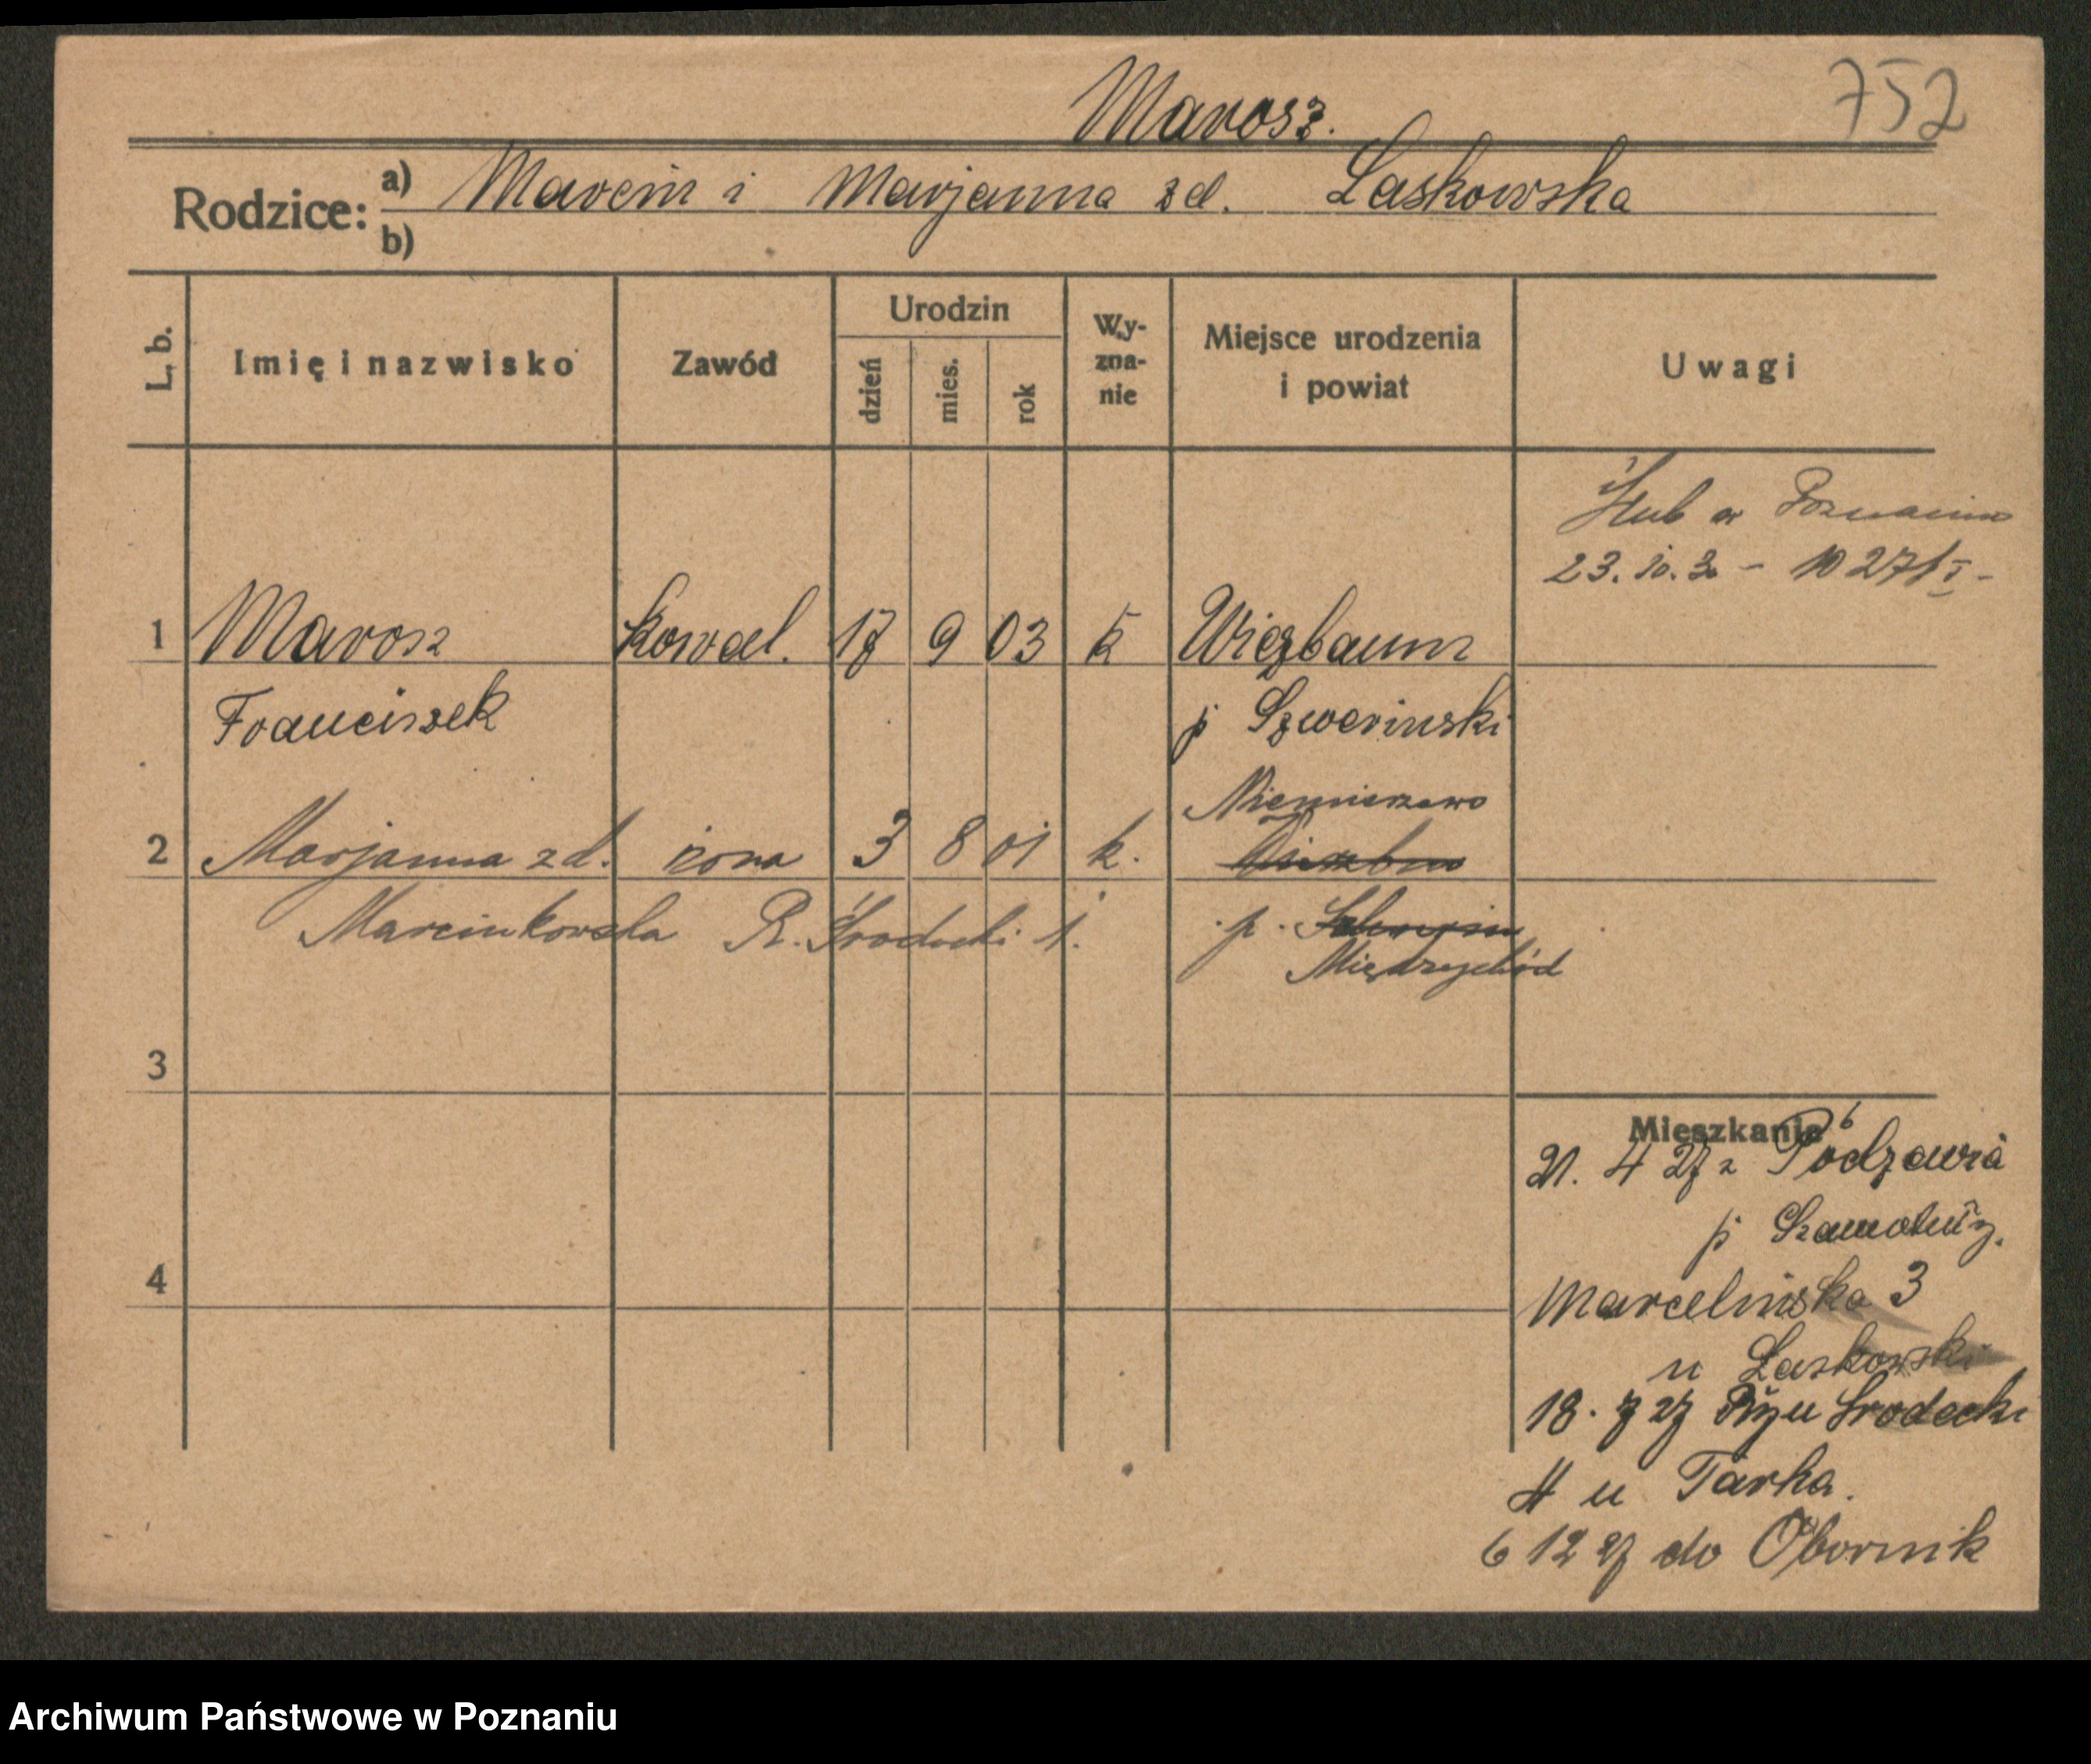 752
Marosz.
Rodzice: a) Marcin i Marjanna zd. Laskowska
b)
L. b. Imię i nazwisko Zawód Urodzin dzień mies. rok Wy-zna-nie Miejsce urodzenia i powiat Uwagi
Ślub w Poznaniu
23. 10. 30 - 1027/I -
1 Marosz kowal. 17 9 03 k Wiezbaum
Franciszek p Szwerinski
Niemierzewo
2 Marjanna zd. żona 3 8 01 k.
Marcinkowska R. Środecki 1. p.
Międzychód
3
Mieszkanie
21. 4 27 z
p Szamotuły.
4
Marcelinska 3
u Laskowski
18. 7 27 Rynu Srodecki
4 u Tarka.
6 12 27 do Obornik
Archiwum Państwowe w Poznaniu